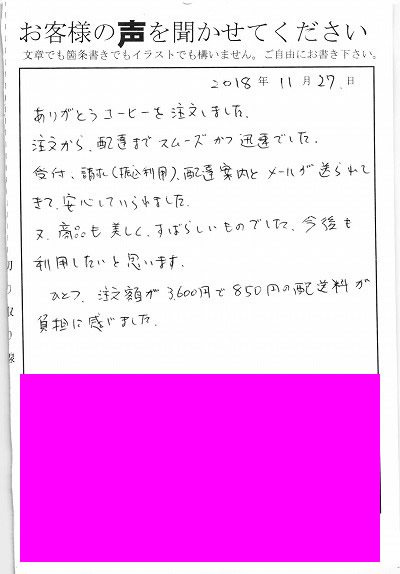 お客様の声を聞かせてください
文章でも箇条書きでもイラストでも構いません。ご自由にお書き下さい。
2018年 11月 27日
ありがとうコーヒーを注文しました。
注文から、配達までスムーズかつ迅速でした。
受付、請求(振込利用)、配達案内とメールが送られて
きて、安心していられました。
又、商品も美しく、すばらしいものでした。今後も
利用したいと思います。
ひとつ、注文額が3,600円で850円の配送料が
負担に感じました。
切り取り線